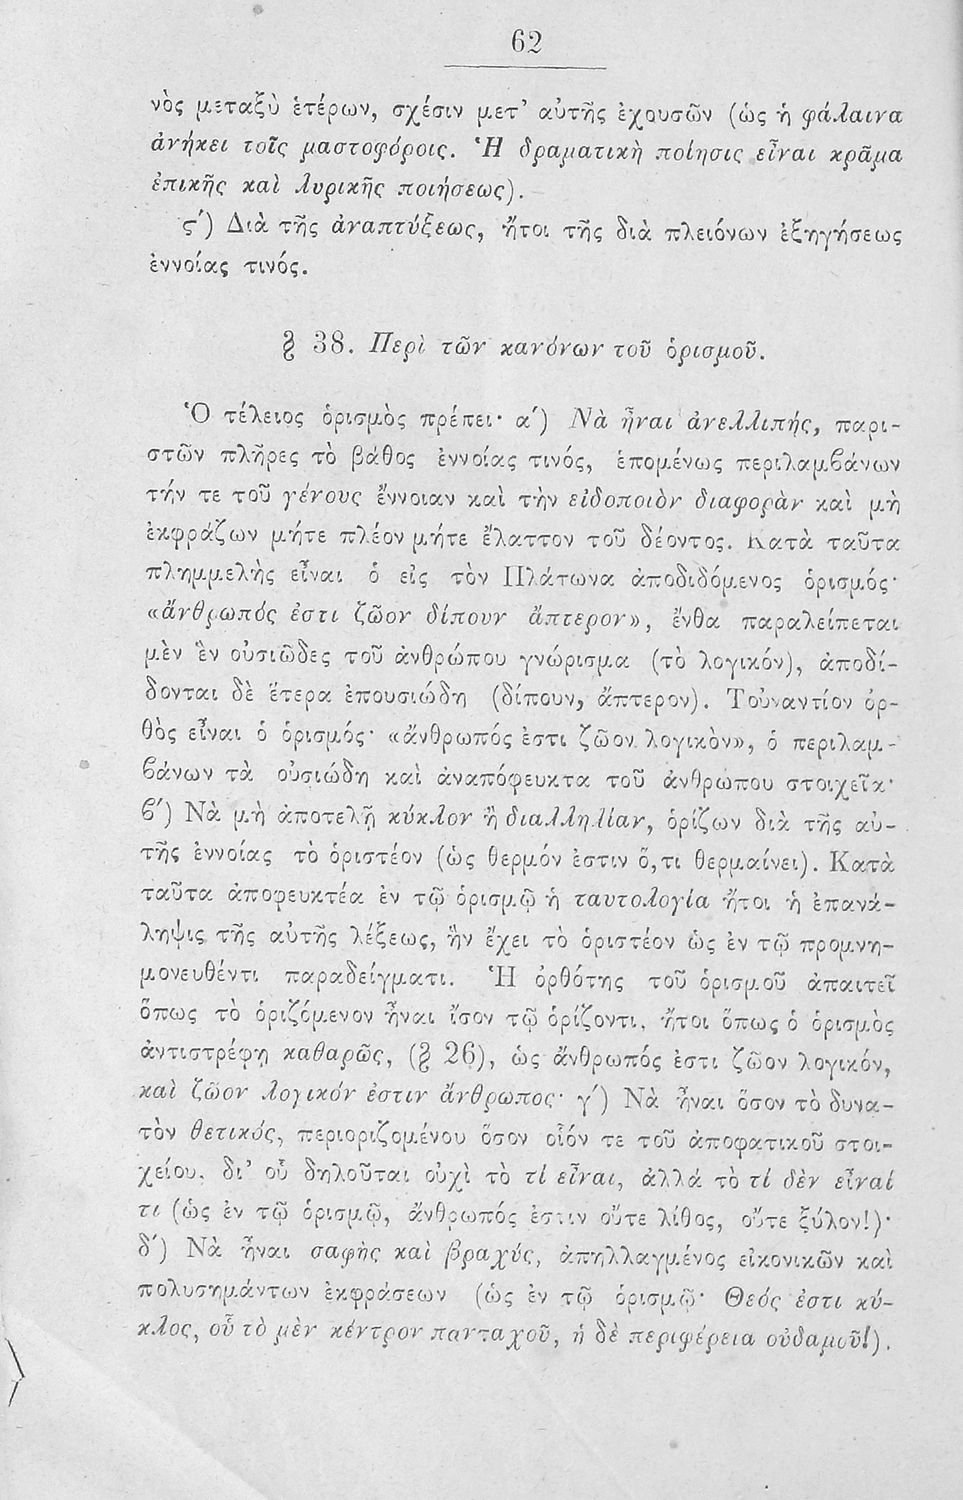 62
νὸς μεταξὺ ἑτέρων, σχέσιν μετ' αὐτῆς ἐχουσῶν (ὡς ἡ φάλαινα
ἀνήκει τοῖς μαστοφόροις. Ἡ δραματικὴ ποίησις εἶναι κρᾶμα
ἐπικῆς καὶ λυρικῆς ποιήσεως).
ς') Διὰ τῆς ἀναπτύξεως, ἤτοι τῆς διὰ πλειόνων ἐξηγήσεως
ἐννοίας τινός.
§ 38. Περὶ τῶν κανόνων τοῦ ὁρισμοῦ.
Ὁ τέλειος ὁρισμὸς πρέπει· α') Νὰ ἦναι ἀνελλιπής, παρι-
στῶν πλῆρες τὸ βάθος ἐννοίας τινός, ἑπομένως περιλαμβάνων
τήν τε τοῦ γένους ἔννοιαν καὶ τὴν εἰδοποιὸν διαφορὰν καὶ μὴ
ἐκφράζων μήτε πλέον μήτε ἔλαττον τοῦ δέοντος. Κατὰ ταῦτα
πλημμελὴς εἶναι ὁ εἰς τὸν Πλάτωνα ἀποδιδόμενος ὁρισμός·
«ἄνθρωπός ἐστι ζῶον δίπουν ἄπτερον», ἔνθα παραλείπεται
μὲν ἓν οὐσιῶδες τοῦ ἀνθρώπου γνώρισμα (τὸ λογικόν), ἀποδί-
δονται δὲ ἕτερα ἐπουσιώδη (δίπουν, ἄπτερον). Τοὐναντίον ὀρ-
θὸς εἶναι ὁ ὁρισμός· «ἄνθρωπός ἐστι ζῶον λογικὸν», ὁ περιλαμ-
βάνων τὰ οὐσιώδη καὶ ἀναπόφευκτα τοῦ ἀνθρώπου στοιχεῖα·
β') Νὰ μὴ ἀποτελῇ κύκλον ἢ διαλληλίαν, ὁρίζων διὰ τῆς αὐ-
τῆς ἐννοίας τὸ ὁριστέον (ὡς θερμόν ἐστιν ὅ,τι θερμαίνει). Κατὰ
ταῦτα ἀποφευκτέα ἐν τῷ ὁρισμῷ ἡ ταυτολογία ἤτοι ἡ ἐπανά-
ληψις τῆς αὐτῆς λέξεως, ἣν ἔχει τὸ ὁριστέον ὡς ἐν τῷ προμνη-
μονευθέντι παραδείγματι. Ἡ ὀρθότης τοῦ ὁρισμοῦ ἀπαιτεῖ
ὅπως τὸ ὁριζόμενον ἦναι ἴσον τῷ ὁρίζοντι, ἤτοι ὅπως ὁ ὁρισμὸς
ἀντιστρέφῃ καθαρῶς, (§ 26), ὡς ἄνθρωπός ἐστι ζῶον λογικόν,
καὶ ζῶον λογικόν ἐστιν ἄνθρωπος· γ') Νὰ ἦναι ὅσον τὸ δυνα-
τὸν θετικός, περιοριζομένου ὅσον οἷόν τε τοῦ ἀποφατικοῦ στοι-
χείου, δι' οὗ δηλοῦται οὐχὶ τὸ τί εἶναι, ἀλλά τὸ τί δὲν εἶναί
τι (ὡς ἐν τῷ ὁρισμῷ, ἄνθρωπός ἐστιν οὔτε λίθος, οὔτε ξύλον!)·
δ') Νὰ ἦναι σαφὴς καὶ βραχύς, ἀπηλλαγμένος εἰκονικῶν καὶ
πολυσημάντων ἐκφράσεων (ὡς ἐν τῷ ὁρισμῷ· Θεός ἐστι κύ-
κλος, οὗ τὸ μὲν κέντρον πανταχοῦ, ἡ δὲ περιφέρεια οὐδαμοῦ!).